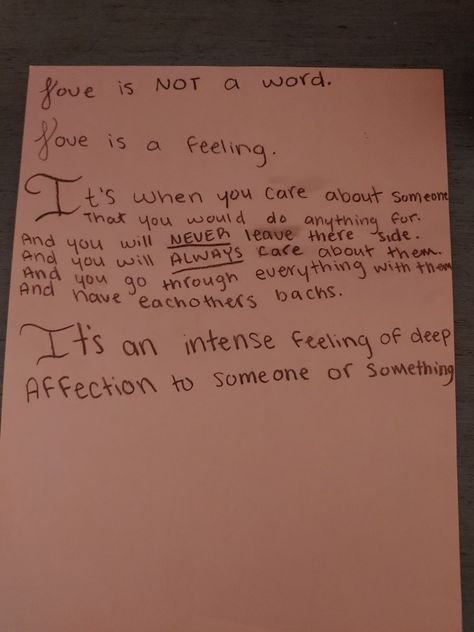 Love is NOT a word.
Love is a feeling.
It's when you care about someone
That you would do anything for.
And you will NEVER leave there side.
And you will ALWAYS care about them.
And you go through everything with them
And have eachothers backs.
It's an intense feeling of deep
Affection to someone or something